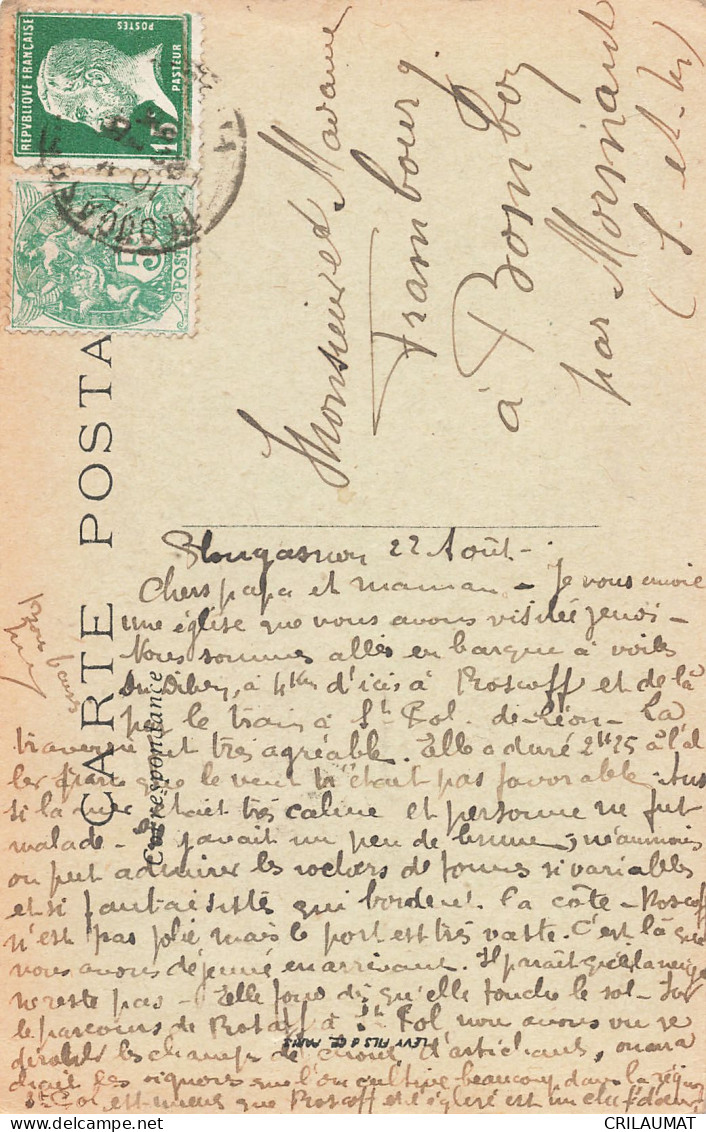 REPVBLIQUE FRANÇAISE
POSTES
PASTEUR
15
5
POSTES
CARTE POSTA
Correspondance
Monsieur et Madame
Frambourg
à Bombon
par Mormant
(S. et M.)
22 Août -
Chers papa et maman - Je vous envoie
une église que nous avons visitée jeudi -
Nous sommes allés en barque à voiles
à 4 km d'ici à Roscoff et de là
par le train à St Pol de Léon - La
traversée fut très agréable. Elle a duré 2h25 à l'al
ler parce que le vent n'était pas favorable. Aus
si la mer était très calme et personne ne fut
malade - Il y avait un peu de brume, néanmoins
on put admirer les rochers de formes si variables
et si fantaisistes qui bordent la côte - Roscoff
n'est pas jolie mais le port est très vaste. C'est là que
nous avons déjeuné en arrivant. Il paraît que la neige
ne reste pas - Elle fond dès qu'elle touche le sol - Sur
le parcours de Roscoff à St Pol nous avons vu se
dérouler les champs de choux, d'artichauts, on arra
chait les oignons que l'on cultive beaucoup dans la région
St Pol est mieux que Roscoff et l'église est un chef d'œuvre
LEVY FILS & Cie PARIS
CRILAUMAT